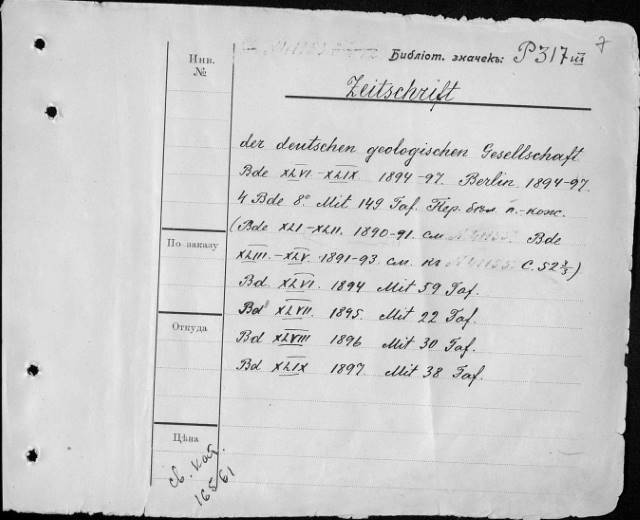 7
Инв.
№
Библіот. значекъ: P317 III
Zeitschrift
der deutschen geologischen Gesellschaft
Bde XLVI.-XLIX. 1894-97. Berlin. 1894-97.
4 Bde 8° Mit 149 Taf. Пер. п.-кож.
(Bde XLI-XLII. 1890-91. см Bde
XLIII.-XLV. 1891-93. см. С. 52)
По заказу
Bd. XLVI. 1894 Mit 59 Taf.
Bd XLVII. 1895. Mit 22 Taf.
Откуда
Bd XLVIII 1896 Mit 30 Taf.
Bd XLIX 1897. Mit 38 Taf.
Цѣна
св. кат.
16561